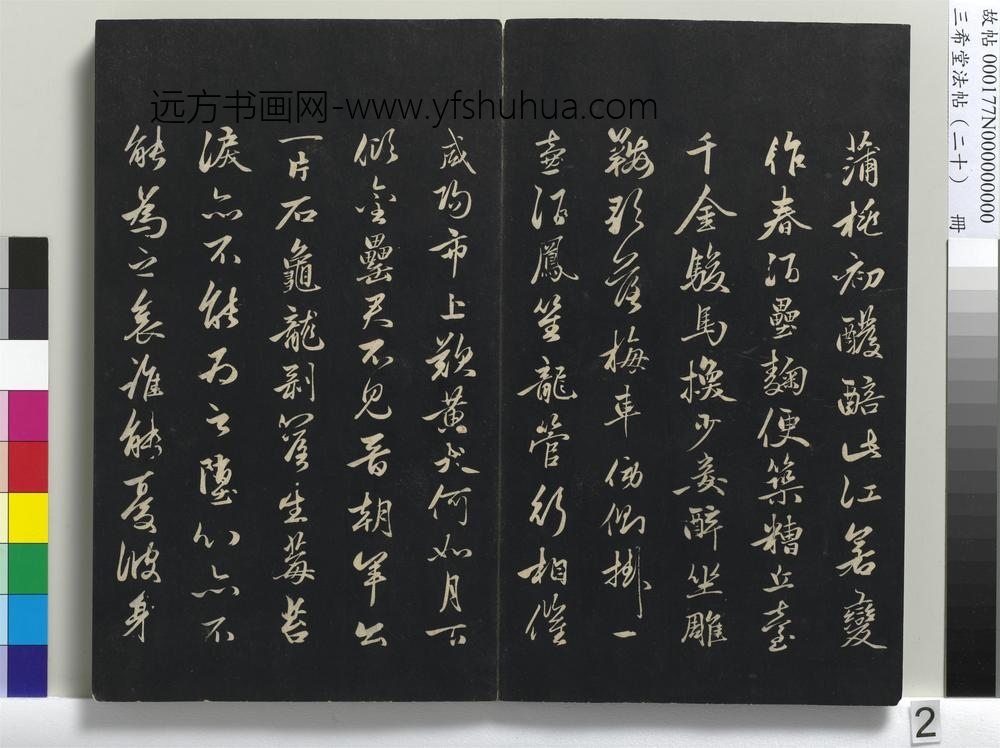 远方书画网-www.yfshuhua.com
蒲桃初醱醅此江若變
作春酒壘麴便築糟丘臺
千金駿馬換少妾醉坐雕
鞍歌落梅車傍側掛一
壺酒鳳笙龍管行相催
咸陽市上歎黃犬何如月下
傾金罍君不見晉朝羊公
一片石龜龍剝落生莓苔
淚亦不能為之墮心亦不
能為之哀誰能憂彼身
故帖 000177N000000000
三希堂法帖（二十） 册
2